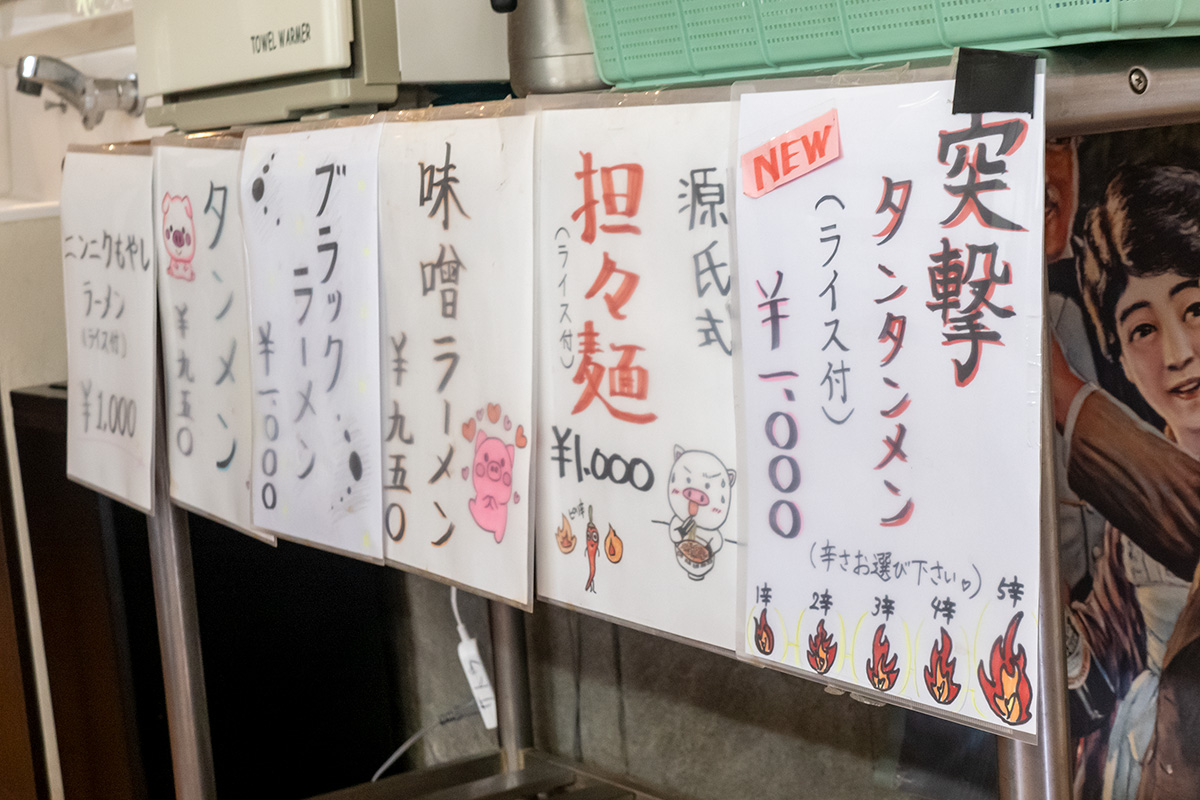 TOWEL WARMER
ニンニクもやし
ラーメン
(ライス付)
¥1,000
タンメン
¥九五〇
ブラック
ラーメン
¥一、〇〇〇
味噌ラーメン
¥九五〇
源氏式
担々麺
(ライス付)
¥1.000
ピリ辛
NEW
突撃
タンタンメン
(ライス付)
¥一、〇〇〇
(辛さお選び下さい♡)
1辛 2辛 3辛 4辛 5辛